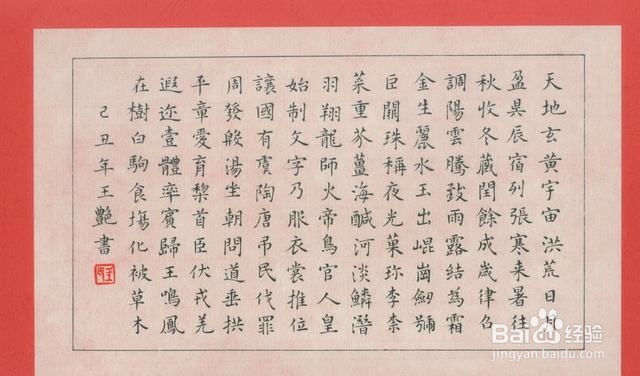 天地玄黃宇宙洪荒日月
盈昃辰宿列張寒来暑往
秋收冬藏閏餘成歲律召
調陽雲騰致雨露結為霜
金生麗水玉出崐崗劒號
巨闕珠稱夜光菓珍李柰
菜重芥薑海鹹河淡鱗潛
羽翔龍師火帝鳥官人皇
始制文字乃服衣裳推位
讓國有虞陶唐吊民伐罪
周發殷湯坐朝問道垂拱
平章愛育黎首臣伏戎羌
遐迩壹體率賓歸王鳴鳳
在樹白駒食場化被草木
己丑年王艷書
Baidu经验
jingyan.baidu.com